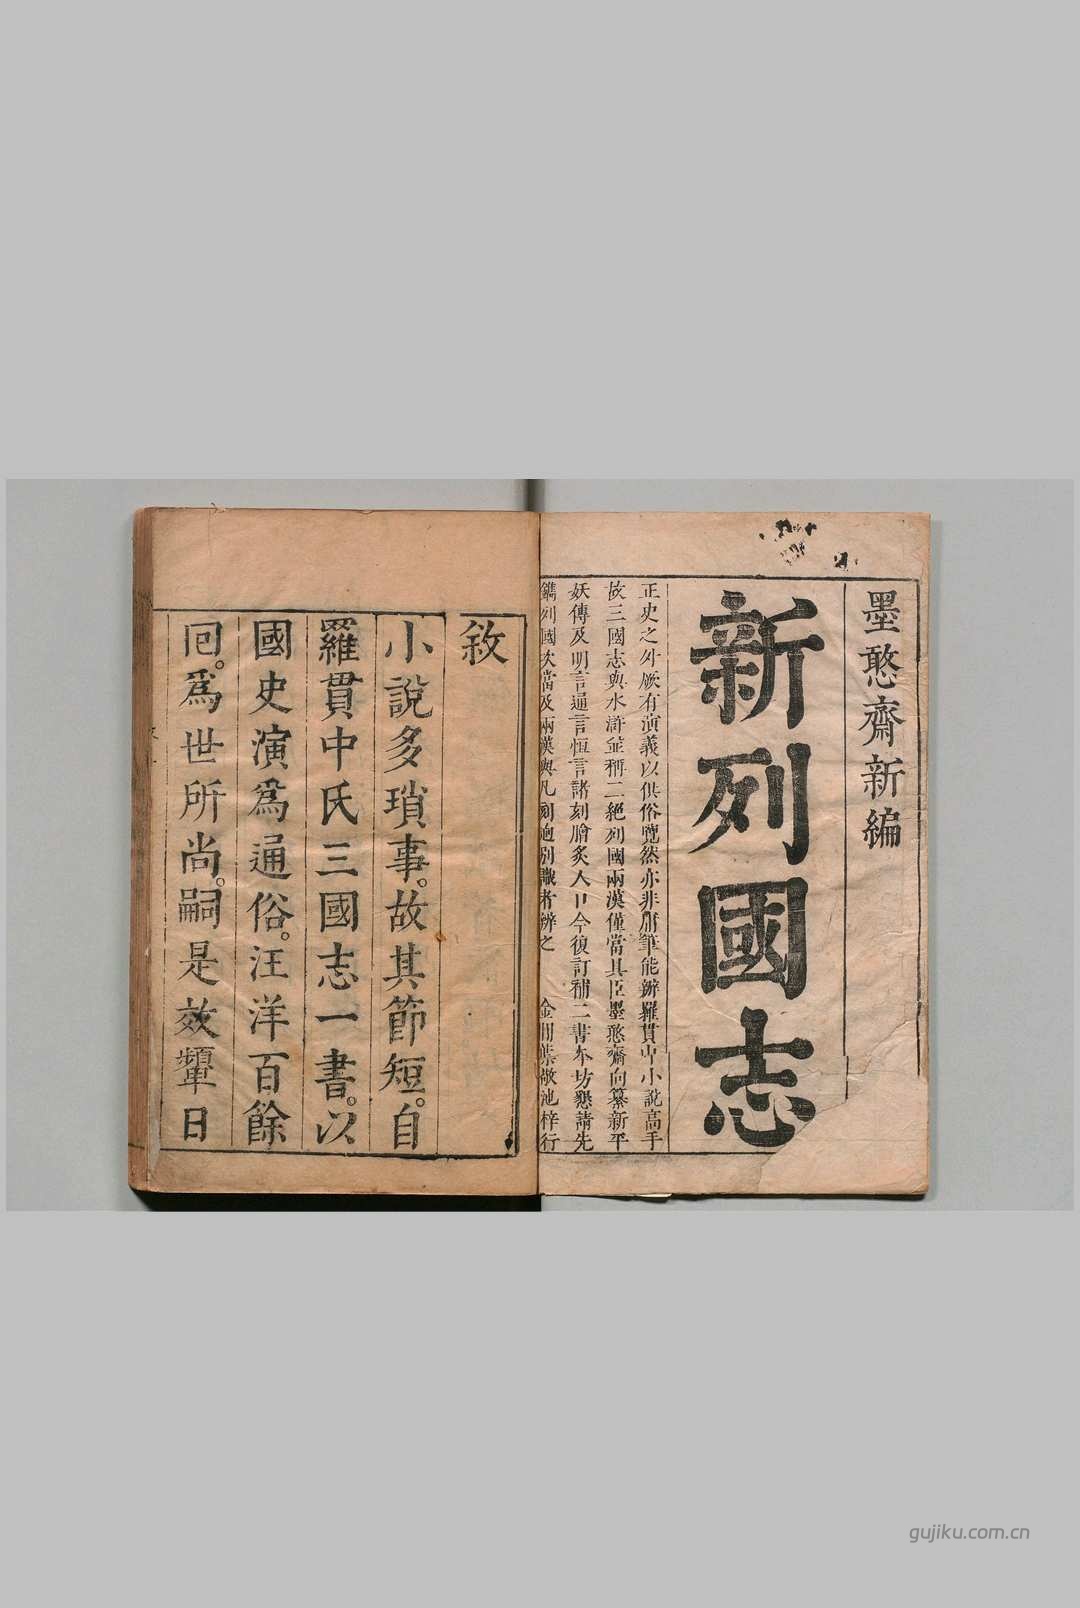 墨憨齋新編
新列國志
正史之外厥有演義以供俗覽然亦非庸筆能辦羅貫中小說高手
故三國志與水滸並稱二絕列國兩漢僅當具臣墨憨齋向纂新平
妖傳及明言通言恒言諸刻膾炙人口今復訂補二書本坊懇請先
鐫列國次當及兩漢與凡刻逈別識者辨之 金閶葉敬池梓行
敘
小說多瑣事。故其節短。自
羅貫中氏三國志一書。以
國史演爲通俗。汪洋百餘
囘。爲世所尚。嗣是效顰日
gujiku.com.cn